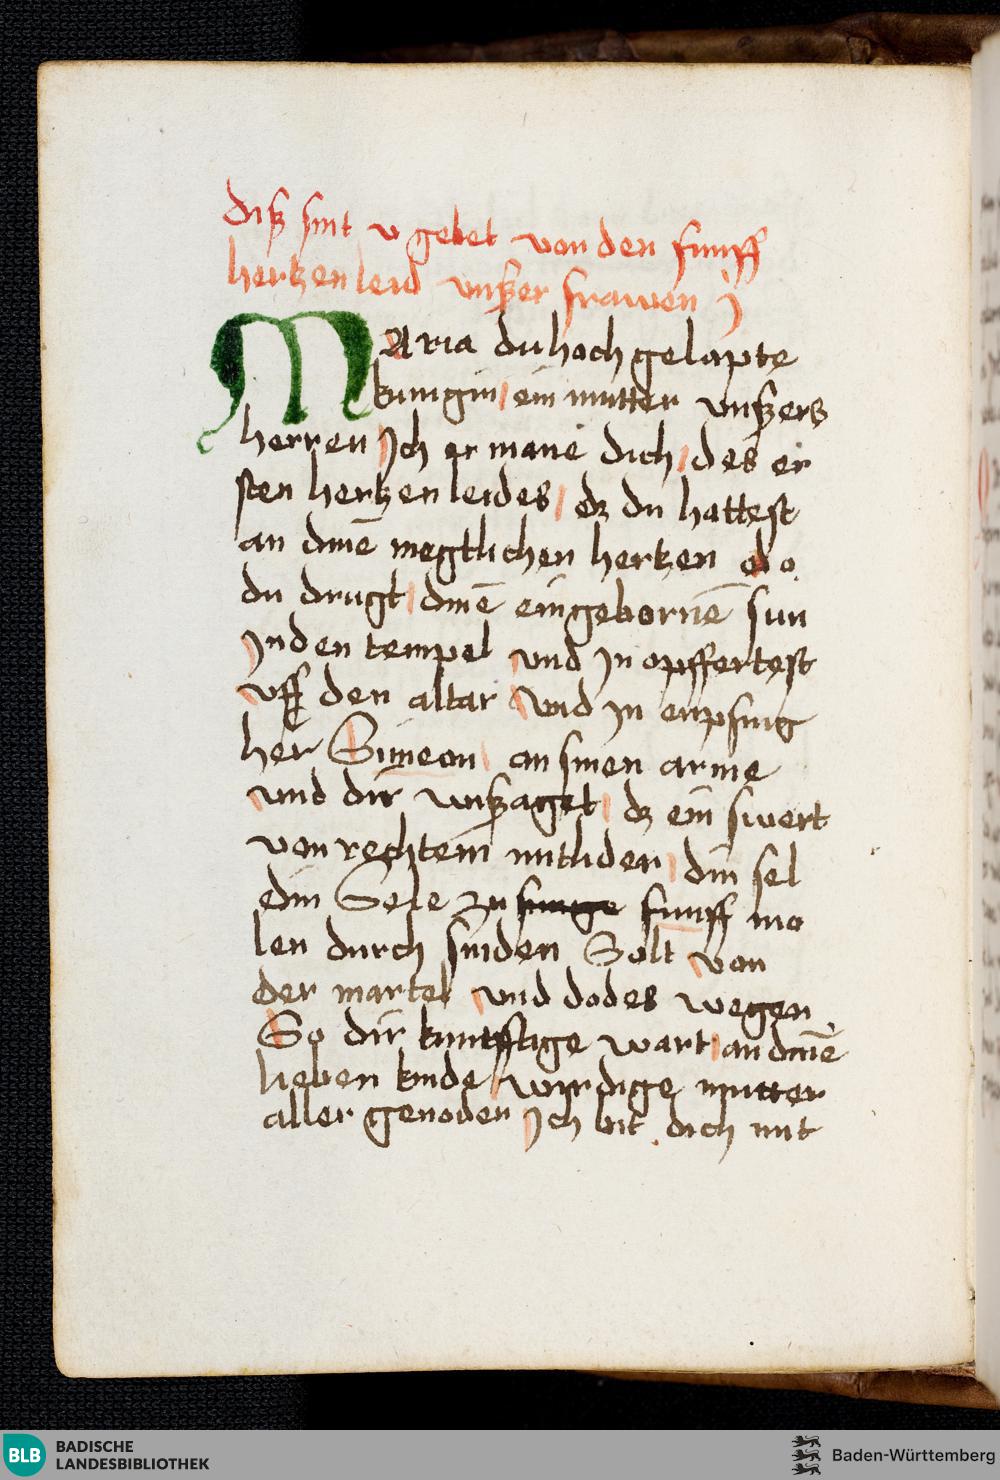 diß sint v gebet von den funff
hertzen leid vnßer frawen
Maria du hoch gelapte
kunigin ein mutter vnßers
herren Ich er mane dich des er
sten hertzen leides dz du hattest
an dinē megtlichen hertzen do
du drugt dinē eingebornē sun
In den tempel vnd In opffertest
vff den altar vnd In enpfing
her Simeon an sinen arme
vnd dir wnßaget dz ein swert
von rechtem mitliden din sel
din Sele zu funff mo
len durch sniden Solt von
der martel vnd dodes wegen
So dir kunfftige wart an dinē
lieben kinde wirdige mutter
aller genoden Ich bit dich mit
BLB BADISCHE
LANDESBIBLIOTHEK
Baden-Württemberg